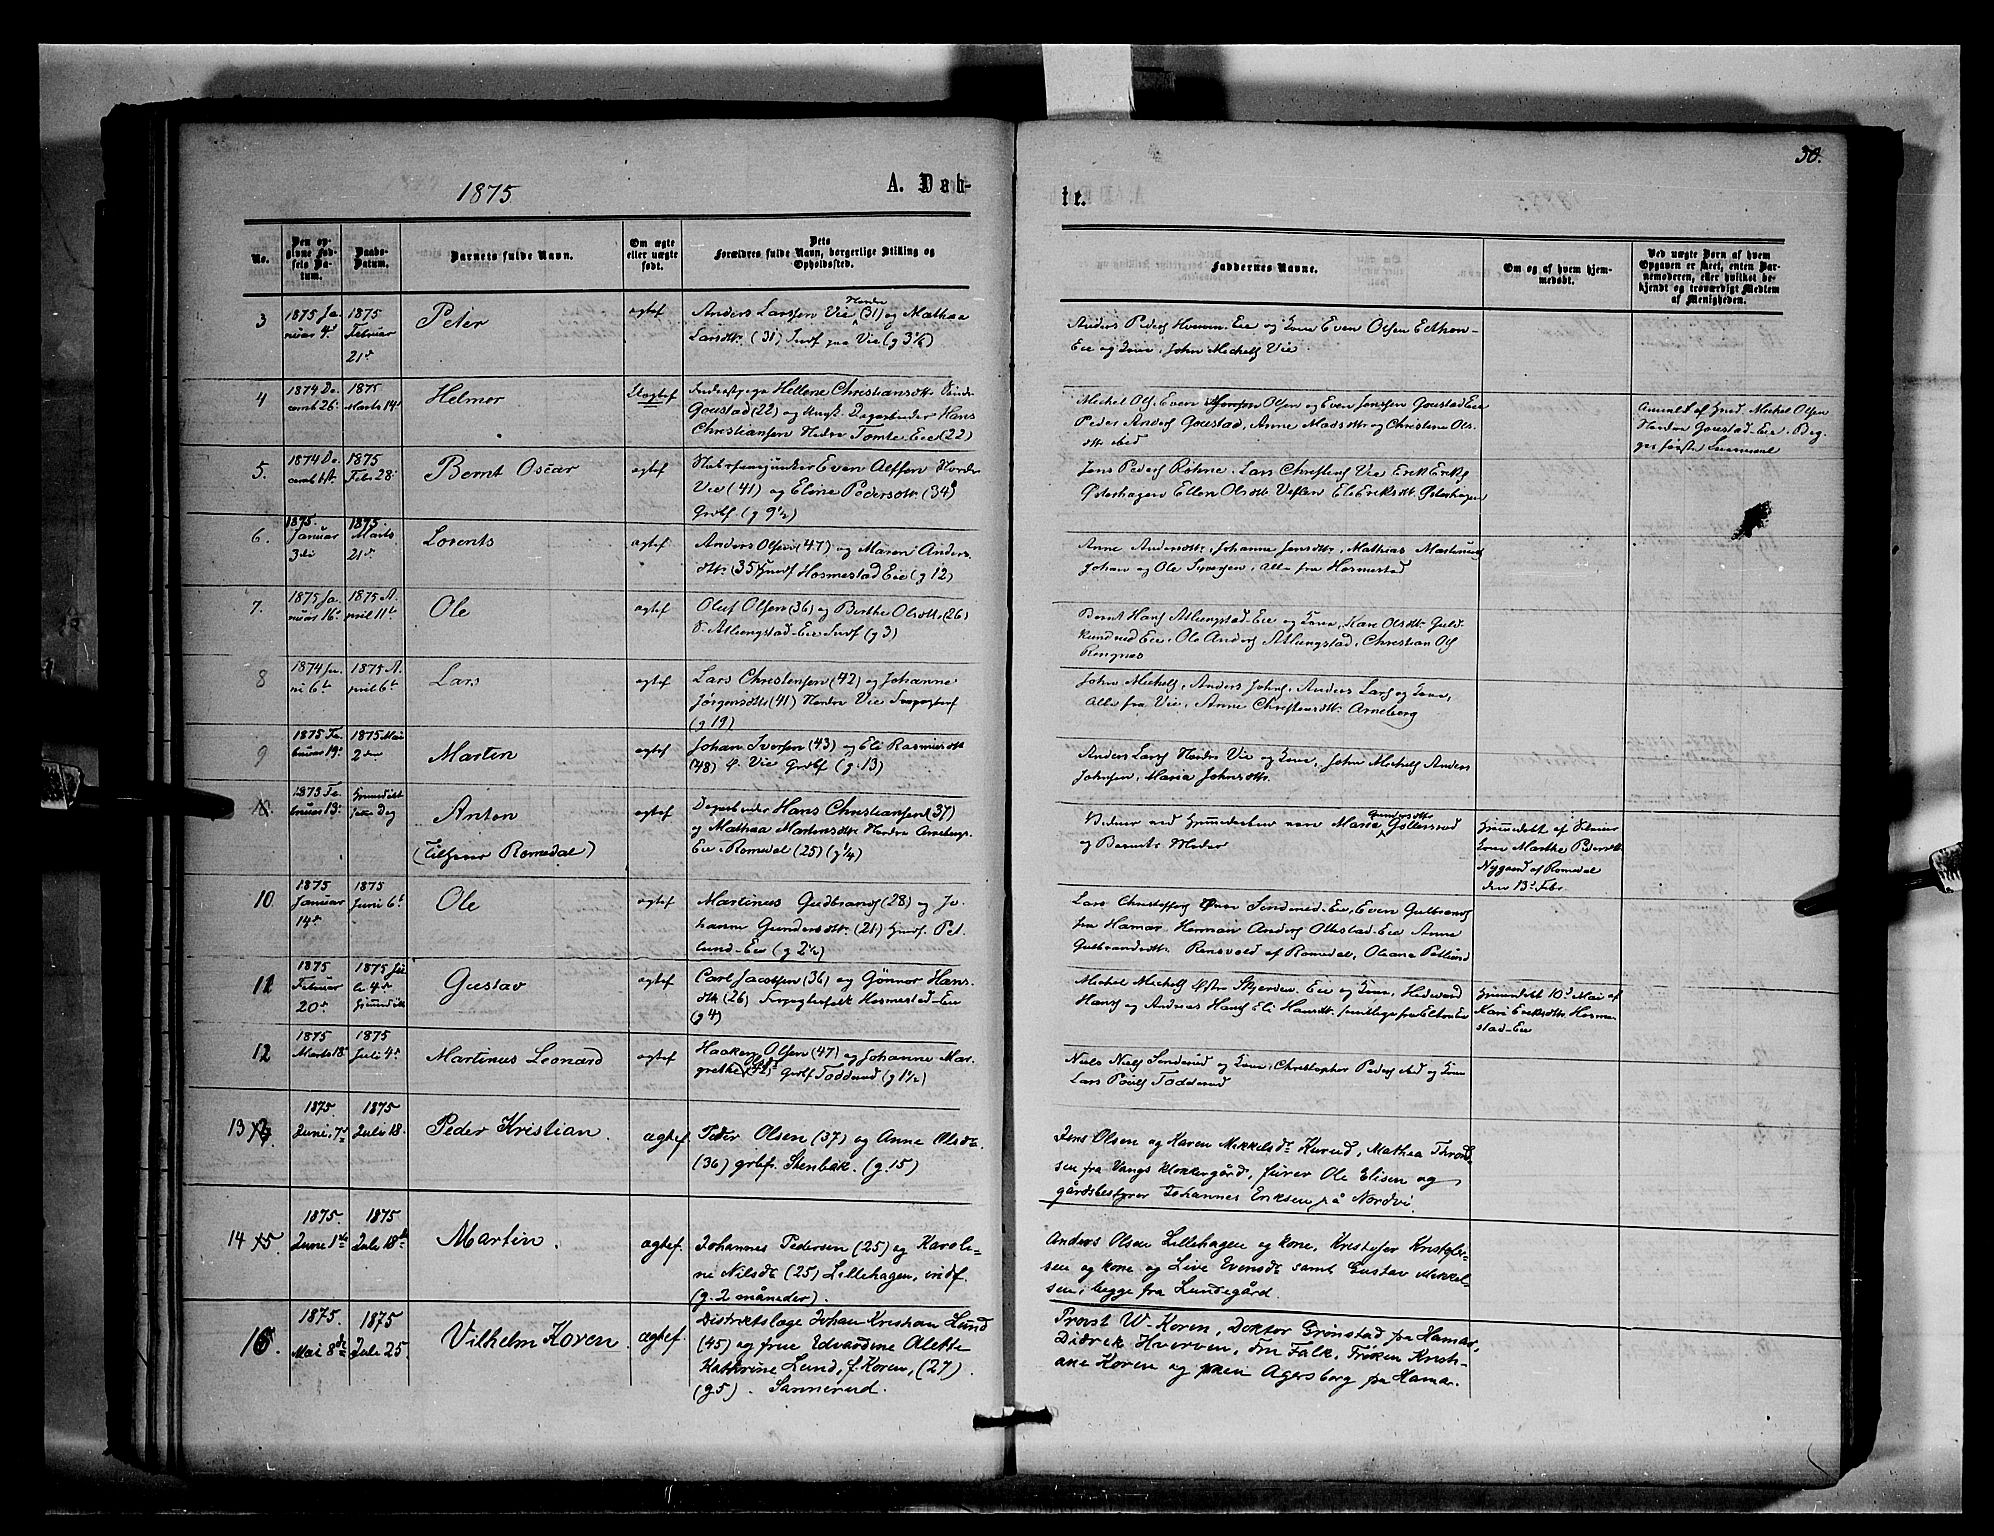 1875
A. Døb-
te.
30.
No.
Den op-
givne Fød-
sels Da-
tum.
Daabs-
Datum.
Barnets fulde Navn.
Om ægte
eller uægte
født.
Dets
Forældres fulde Navn, borgerlige Stilling og
Opholdssted.
Faddernes Navne.
Om og af hvem hjem-
medøbt.
Ved uægte Børn af hvem
Opgaven er skeet, enten Bar-
nemoderen, eller hvilket be-
kjendt og troværdigt Medlem
af Menigheden.
3
1875 Ja-
nuar 4d
1875
Februar
21d
Peter
ægtef
Anders Larssen Vie Nordre (31) og Mathea
Larsdtr (31) Indf paa Vie (g 3½)
Anders Peders Hvenm. Eie og Kone Even Olsen
Eie og Kone, John Michels Vie
4
1874 De
cemb 26
1875
Marts 14d
Helmer
Uægtef
Hellene Christiansdtr
Goustad (22) og Ungk. Dagarbeider Hans
Christiansen Nedre Tomte Eie (22)
Michel Ols. Even Olsen og Even Jenssen Goustad Eie
Peder Anders Goustad, Anne Madsdtr og Christine Ols
dtr ibid
Anmeldt af Gmd. Michel Olsen
Nordre Goustad-Eie. Beg-
ges første Leiermaal
5.
1874 De
cemb
1875
Febr 28
Bernt Oscar
ægtef
Even Alfsen Nordre
Vie (41) og Eline Pedersdtr (34)
Grdbf. (g 9½)
Jens Peders Røhne. Lars Christens Vie Erik Eriks
Østerhagen Ellen Olsdtr Vestlen Eli Eriksdtr Østerhagen
6.
1875.
Januar
3die
1875.
Marts
21d
Lorents
ægtef
Anders Olsen (47) og Maren Anders
dtr (35) Husf Hosmestad Eie (g 12)
Anne Andersdtr, Johanne Jensdtr, Mathias Martinus
Johan og Ole Iversen, Alle fra Hosmestad
7.
1875 Ja-
nuar 16d
1875 A
pril 11te
Ole
ægtef
Oluf Olsen (36) og Berthe Olsdtr (26)
S. Atlungstad-Eie Indf (g 3)
Bernt Hans Atlungstad-Eie og Kone, Kari Olsdtr Guld-
Eie, Ole Anders Atlungstad, Christian Ols
Rengnes
8
1874 Ju-
ni 6te
1875 A
pril 6te
Lars
ægtef
Lars Christensen (42) og Johanne
Jørgensdtr (41) Nordre Vie
(g 19)
John Michels, Anders Johns, Anders Lars og Kone,
Alle fra Vie, Anne Christensdtr Arneberg
9
1875 Fe
bruar 19d
1875 Mai
2den
Martin
ægtef
Johan Iversen (43) og Eli Rasmusdtr
(48) S. Vie Grdbf (g. 13)
Anders Lars Nordre Vie og Kone, John Michels Anders
Johnsen, Maria Johnsdtr.
10
1875 Fe
bruar 13d
hjemdøbt
Dag
Anton
(Tilhører Romedal)
ægtef
Dagarbeider Hans Christiansen (37)
og Mathea Martensdtr Nordre Arneberg-
Eie Romedal (25) (g ¼)
Vidner ved Hjemmedaaben vare Marie Gundersdtr
og Barnets Moder
hjemmedøbt af
Kone Marthe Pedersdtr
Nygaard af Romedal
den 13d Febr.
10
1875
Januar
14d
1875
Juni 6te
Ole
ægtef
Martinus Gudbrands (28) og Jo-
hanne Gundersdtr (21) Husf. Pet-
lund-Eie (g 2½)
Lars Christophers Eie, Even Gulbrands
fra Hamar, Herman Anders Olkstad-Eie Anne
Gulbrandsdtr Rensvold af Romedal, Oleane Petlund
11
1875
Februar
20d
1875 Ju
li 4d
hjemdøbt
Gustav
ægtef
Carl Jacobsen (36) og Gønnor Hans
dtr (26) Hosmestad-Eie
(g 4)
Michel Michels Østre Skjerden Eie og Kone, Hedevard
Hans og Andreas Hans Eli Hansdtr samtlige fra Elton Eie
hjemmedøbt 10d Mai af
Kari Eriksdtr Hosme-
stad-Eie
12
1875
Marts 18
1875
Juli 4d
Martinus Leonard
ægtef
Haaken Olsen (47) og Johanne Mar-
grethe Olsdtr (42) Grdbf Toddrud (g 1½)
Niels Niels Sinderud og Kone, Christopher Peders ibid og Kone
Lars Pouls Toddrud
13
1875.
Juni 7d
1875
Juli 18.
Peder Kristian.
ægtef.
Peder Olsen (37) og Anne Olsdtr
(36) grbf. Stenbæk. (g. 15)
Jens Olsen og Karen Mikkelsdtr Kurud, Mathea Thrond-
sen fra Vangs Klokkergård, furer Ole Elisen og
gårdsbestyrer Johannes Eriksen på Nordvi.
14 15.
1875.
Juni 1ste
1875
Juli 18de
Martin.
ægtef.
Johannes Pedersen (25) og Karoli-
ne Nilsdtr (25) Lillehagen, indf.
(g. 2 måneder).
Anders Olsen Lillehagen og kone, Kristofer Kristofer-
sen og kone og Live Evensdtr samt Gustav Mikkel-
sen, begge fra Lundegård.
16.
1875.
Mai 8de
1875
Juli 25.
Vilhelm Koren.
ægtef.
Distriktslæge Johan Kristian Lund
(45) og frue Edvardine Alette
Kathrine Lund, f. Koren, (27).
(g 5). Sannerud.
Provst W. Koren, Doktor Grønstad fra Hamar,
Didrik Hverven, Fru Falk, Frøken Kristi-
ane Koren og frøken Agersborg fra Hamar.